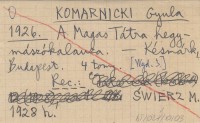 0 KOMARNICKI Gyula
1926. A Magas Tátra hegy-
mászókalauza. — Késmárk,
Budapest. 4 tomy. [Wyd. 3]
Rec.:
ŚWIERZ M.
1928 h.